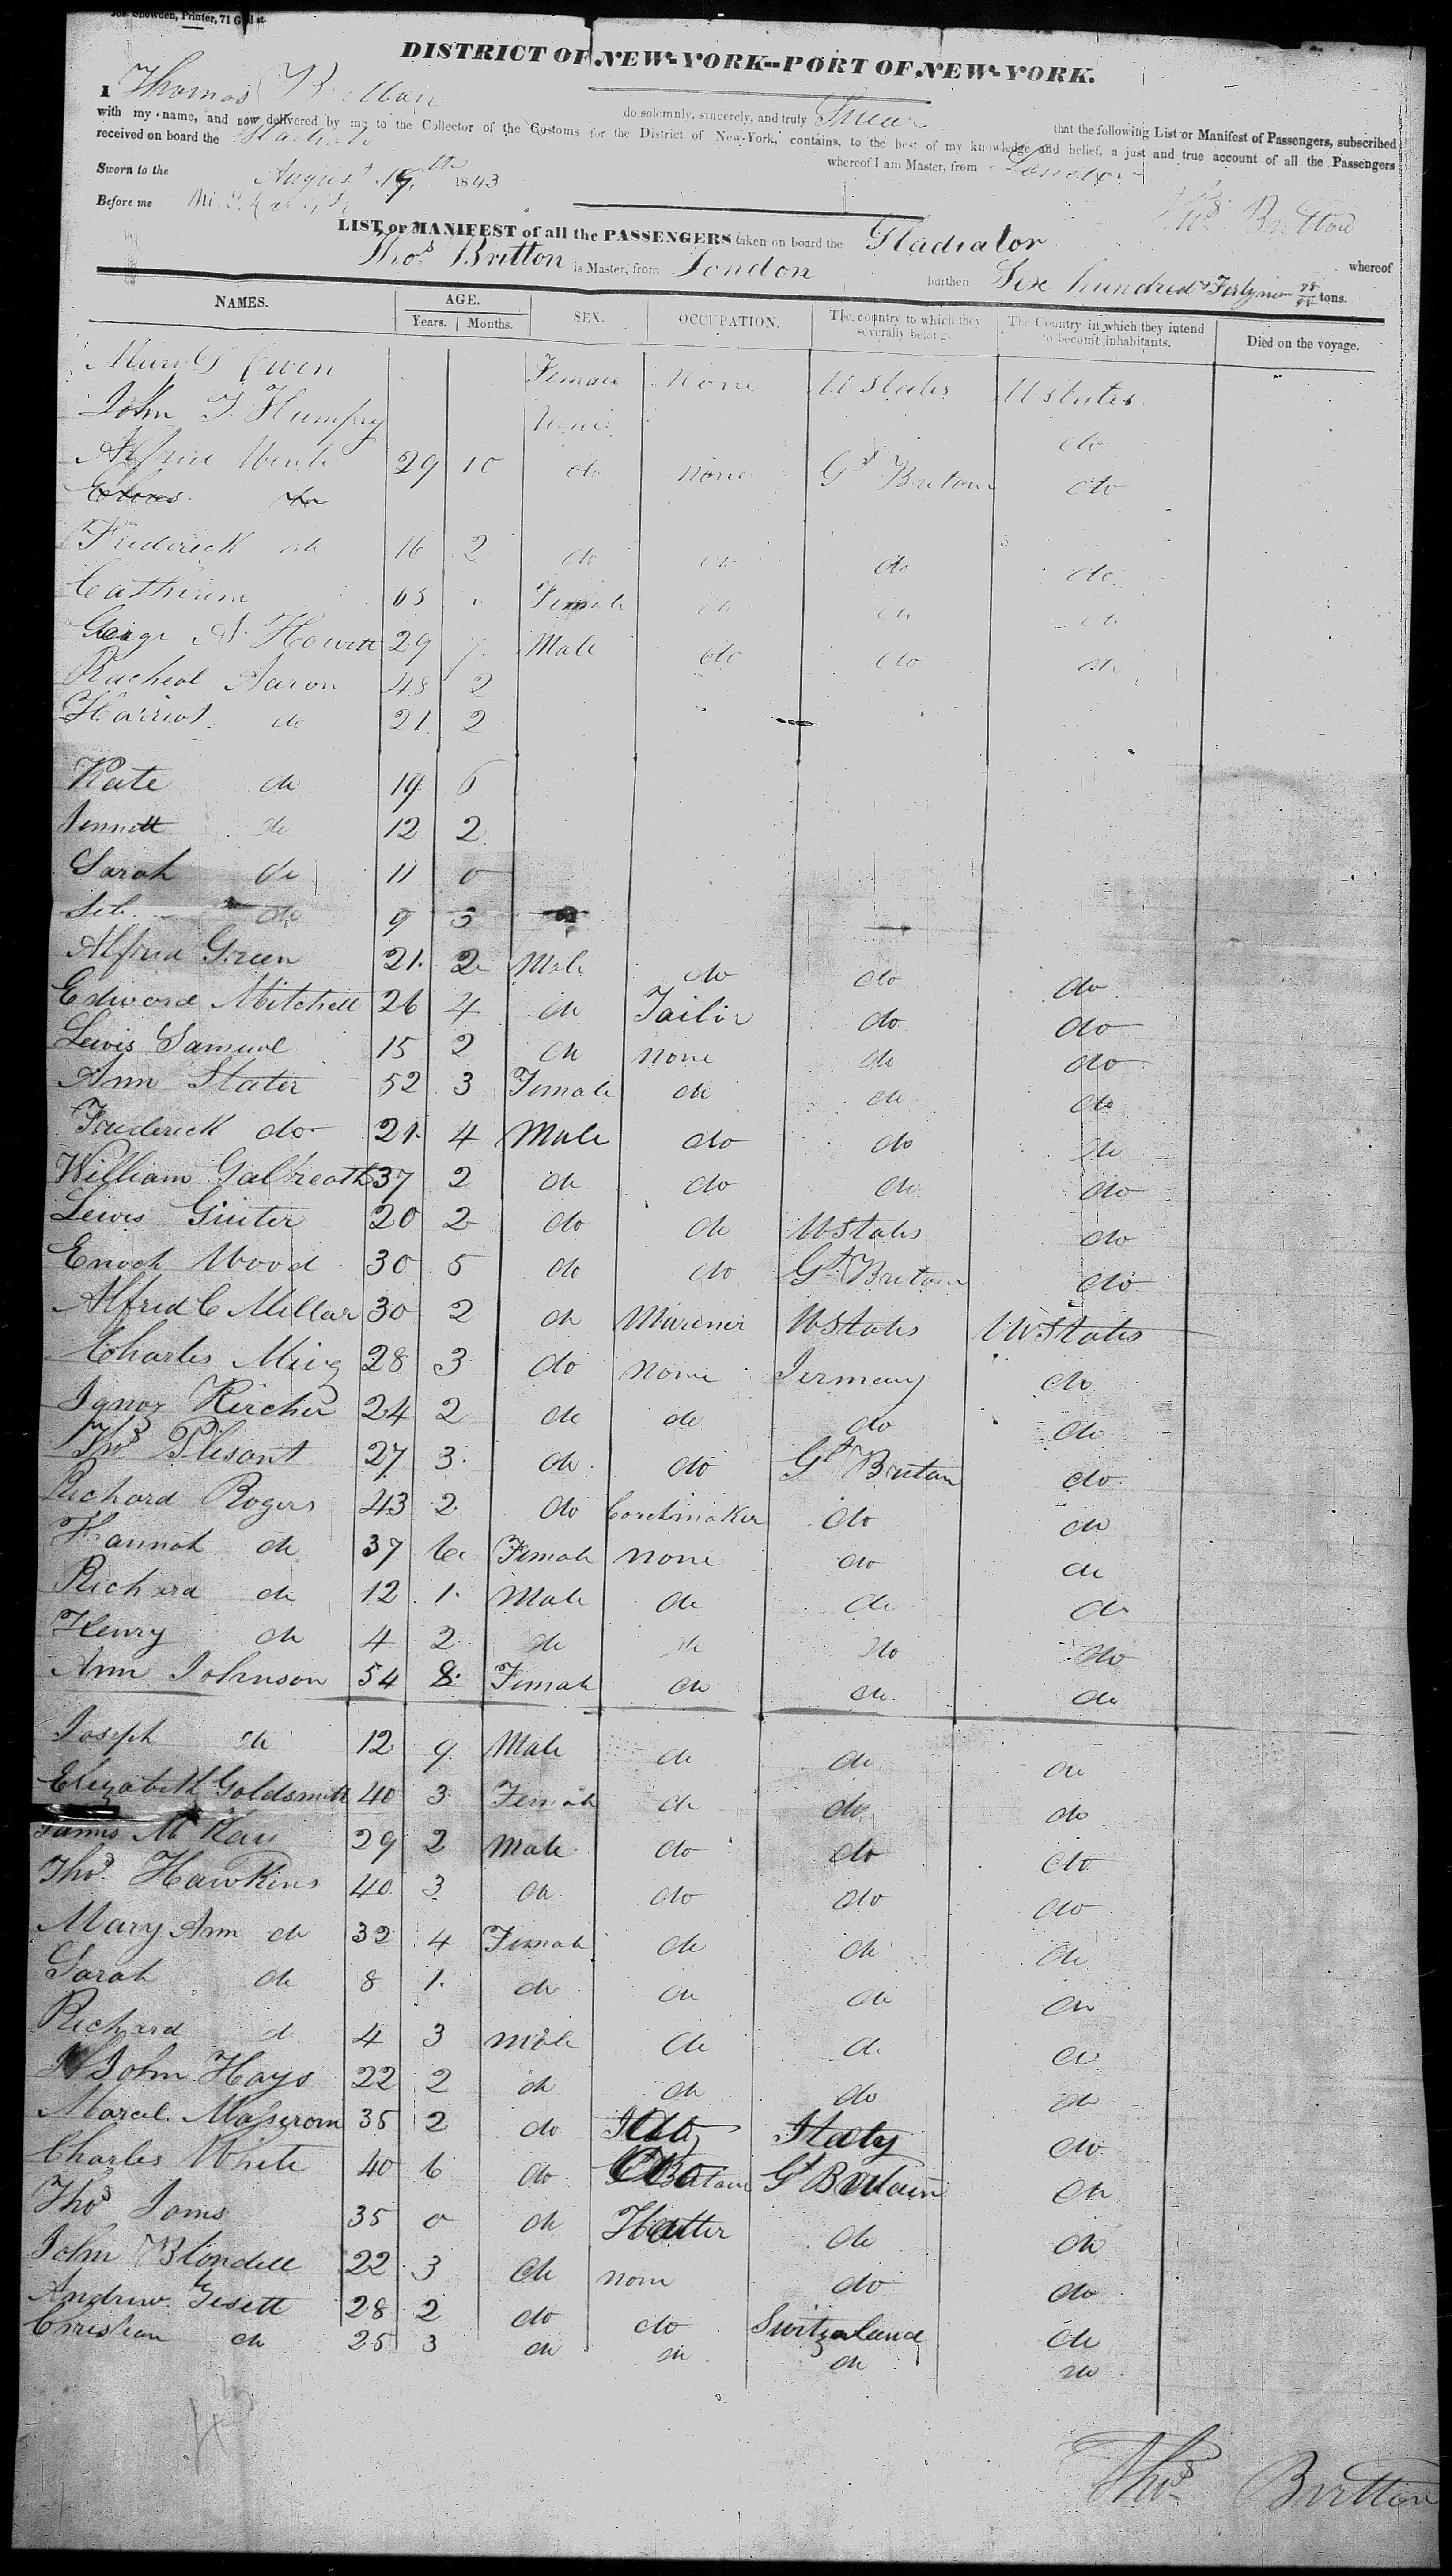 Jos. Snowden, Printer, 71 Gold st.
DISTRICT OF NEW-YORK--PORT OF NEW-YORK.
I Thomas Britton do solemnly, sincerely, and truly Swear that the following List or Manifest of Passengers, subscribed
with my name, and now delivered by me to the Collector of the Customs for the District of New-York, contains, to the best of my knowledge and belief, a just and true account of all the Passengers
received on board the Gladiator whereof I am Master, from London
Sworn to the August 19th 1843
Before me Thos Britton
LIST or MANIFEST of all the PASSENGERS taken on board the Gladiator whereof
Thos Britton is Master, from London burthen Six hundred & Forty nine tons.
NAMES. AGE. Years. Months. SEX. OCCUPATION. The country to which they severally belong. The Country in which they intend to become inhabitants. Died on the voyage.
Mary G Female None U States U States
John T. Humfry do
Alfred 29 10 do None Gt Britain do
do
Frederick do 16 2 do do do do
Catherine Female do do do
George 29 Male do do do
Racheal Aaron 48 2
Harriot do 21 2
Kate do 19 6
Jennett do 12 2
Sarah do 11 0
do 9 3
Alfred Green 21 2 Male do do do
Edward Mitchell 26 4 do Tailor do do
Lewis Samuel 15 2 do None do do
Ann Slater 52 3 Female do do do
Frederick do 21 4 Male do do do
William Galbreath 37 2 do do do do
Lewis Ginter 20 2 do do U States do
Enoch Wood 30 5 do do Gt Britain do
Alfred C Millar 30 2 do Mariner U States U States
Charles 28 3 do None Germany do
Ignoz Kircher 24 2 do do do do
Thos Plesant 27 3 do do Gt Britain do
Richard Rogers 43 2 do Coachmaker do do
Hannah do 37 6 Female None do do
Richard do 12 1 Male do do do
Henry do 4 2 do do do do
Ann Johnson 54 8 Female do do do
Joseph do 12 9 Male do do do
Elizabeth Goldsmith 40 3 Female do do do
James McKay 29 2 Male do do do
Thos Hawkins 40 3 do do do do
Mary Ann do 32 4 Female do do do
Sarah do 8 1 do do do do
Richard do 4 3 Male do do do
John Hays 22 2 do do do do
35 2 do Italy do
Charles White 40 6 do Gt Britain do
Thos 35 0 do Hatter do do
John Blondell 22 3 do None do do
Andrew Gesett 28 2 do do Switzaland do
Christian do 25 3 do do do do
Thos Britton